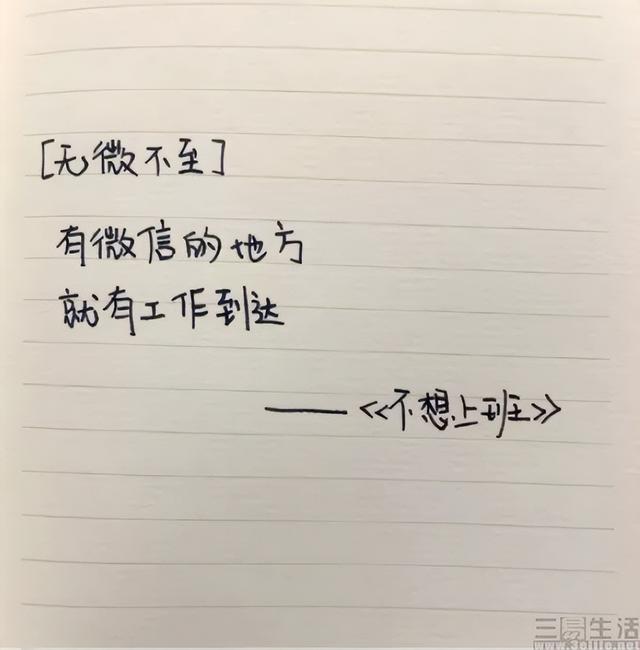 [无微不至]
有微信的地方
就有工作到达
——《不想上班》
三易生活